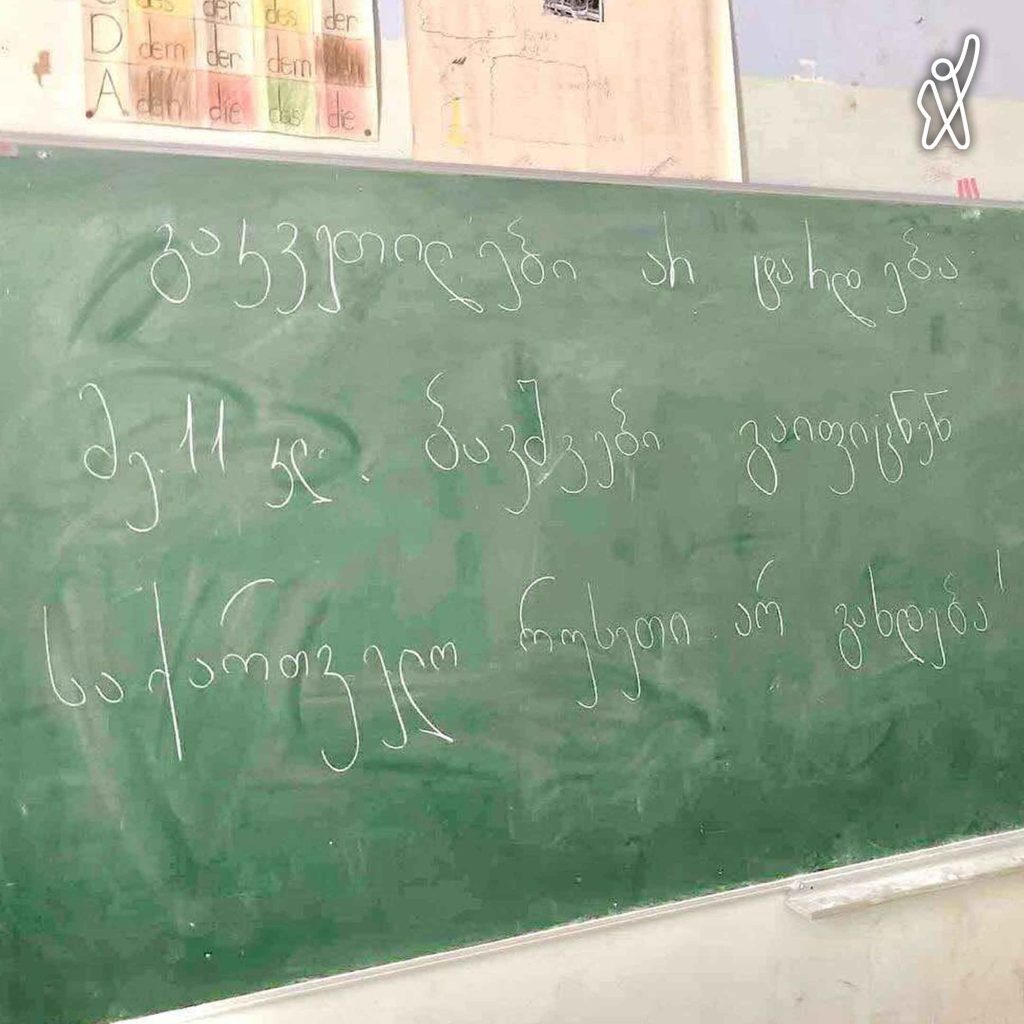 des der des der
D dem der dem
A den die das die
გაკვეთილები არ ტარდება
მე.11 კლ. ბავშვები გაიფიცნენ
საქართველო რუსეთი არ გახდება!